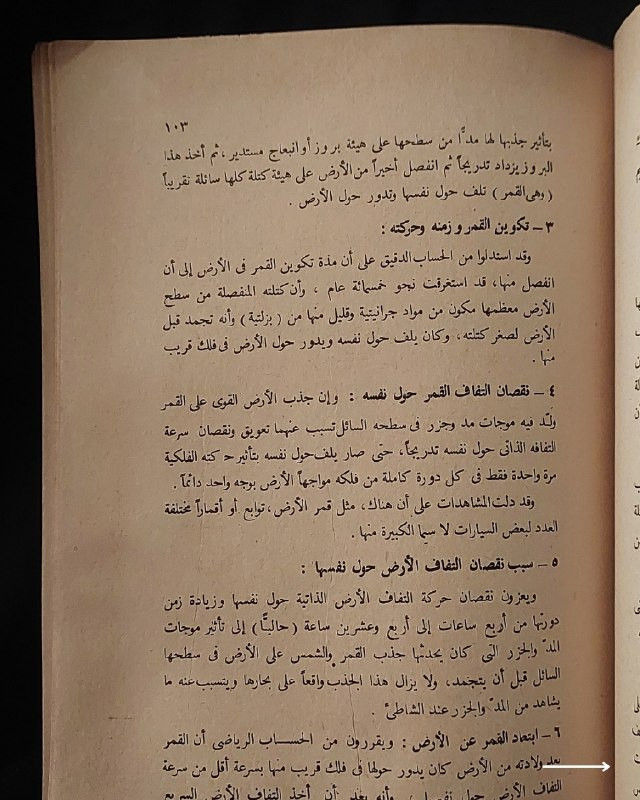 ١٠٣
بتأثير جذبها لها مدًّا من سطحها على هيئة بروز أو انبعاج مستدير، ثم أخذ هذا
البروز يزداد تدريجاً ثم انفصل أخيراً من الأرض على هيئة كتلة كلها سائلة تقريباً
(وهى القمر) تلف حول نفسها وتدور حول الأرض .
٣ ــ تكوين القمر وزمنه وحركته :
وقد استدلوا من الحساب الدقيق على أن مدة تكوين القمر فى الأرض إلى أن
انفصل منها، قد استغرقت نحو خمسمائة عام ، وأن كتلته المنفصلة من سطح
الأرض معظمها مكون من مواد جرانيتية وقليل منها من (بزلتية) وأنه تجمد قبل
الأرض لصغر كتلته، وكان يلف حول نفسه ويدور حول الأرض فى فلك قريب
منها .
٤ ــ نقصان التفاف القمر حول نفسه : وإن جذب الأرض القوى على القمر
ولّد فيه موجات مد وجزر فى سطحه السائل تسبب عنهما تعويق ونقصان سرعة
التفافه الذاتى حول نفسه تدريجاً، حتى صار يلف حول نفسه بتأثير حركته الفلكية
مرة واحدة فقط فى كل دورة كاملة من فلكه مواجهاً الأرض بوجه واحد دائماً .
وقد دلت المشاهدات على أن هناك، مثل قمر الأرض، توابع أو أقماراً مختلفة
العدد لبعض السيارات لا سيما الكبيرة منها .
٥ ــ سبب نقصان التفاف الأرض حول نفسها :
ويعزون نقصان حركة التفاف الأرض الذاتية حول نفسها وزيادة زمن
دورتها من أربع ساعات إلى أربع وعشرين ساعة (حاليًّا) إلى تأثير موجات
المدّ والجزر التى كان يحدثها جذب القمر والشمس على الأرض فى سطحها
السائل قبل أن يتجمد، ولا يزال هذا الجذب واقعاً على بحارها ويتسبب عنه ما
يشاهد من المدّ والجزر عند الشاطئ .
٦ ــ ابتعاد القمر عن الأرض : ويقررون من الحساب الرياضى أن القمر
بعد ولادته من الأرض كان يدور حولها فى فلك قريب منها بسرعة أقل من سرعة
التفاف الأرض حول نفسها، وأنه بعد أن أخذ التفاف الأرض السريع